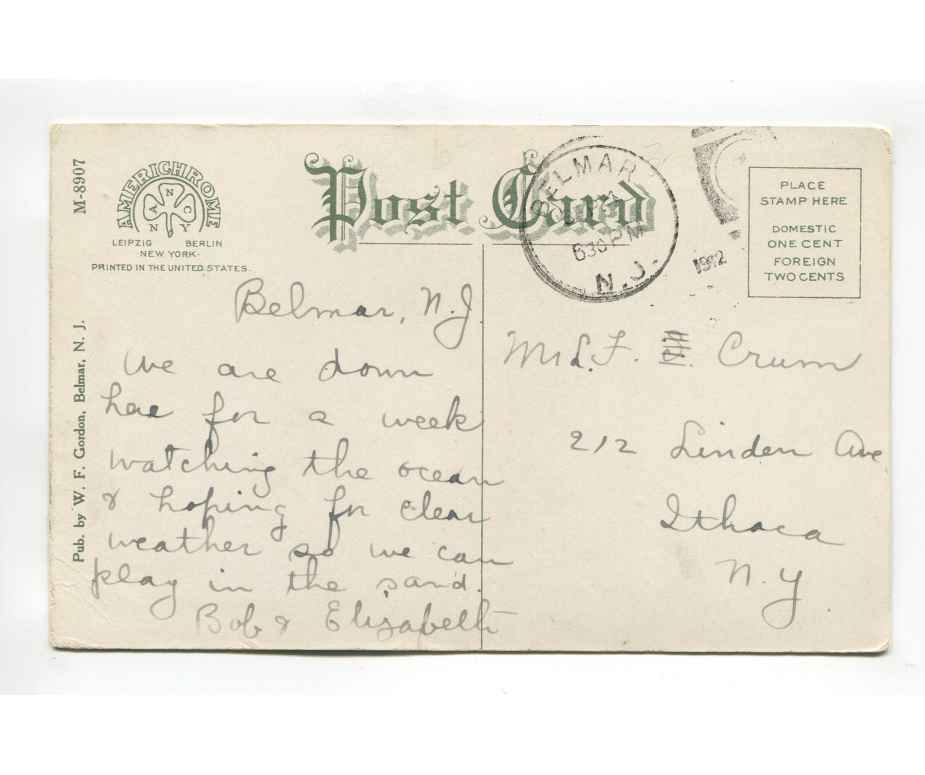 M-8907
AMERICHROME
T N C
N Y
LEIPZIG BERLIN
NEW YORK
PRINTED IN THE UNITED STATES.
Pub. by W. F. Gordon, Belmar, N. J.
Post Card
BELMAR
630 PM
N.J.
1912
PLACE
STAMP HERE
DOMESTIC
ONE CENT
FOREIGN
TWO CENTS
Belmar, N.J.
We are down
here for a week
watching the ocean
& hoping for clear
weather so we can
play in the sand.
Bob & Elizabeth
F. Crum
212 Linden Ave
Ithaca
N.Y